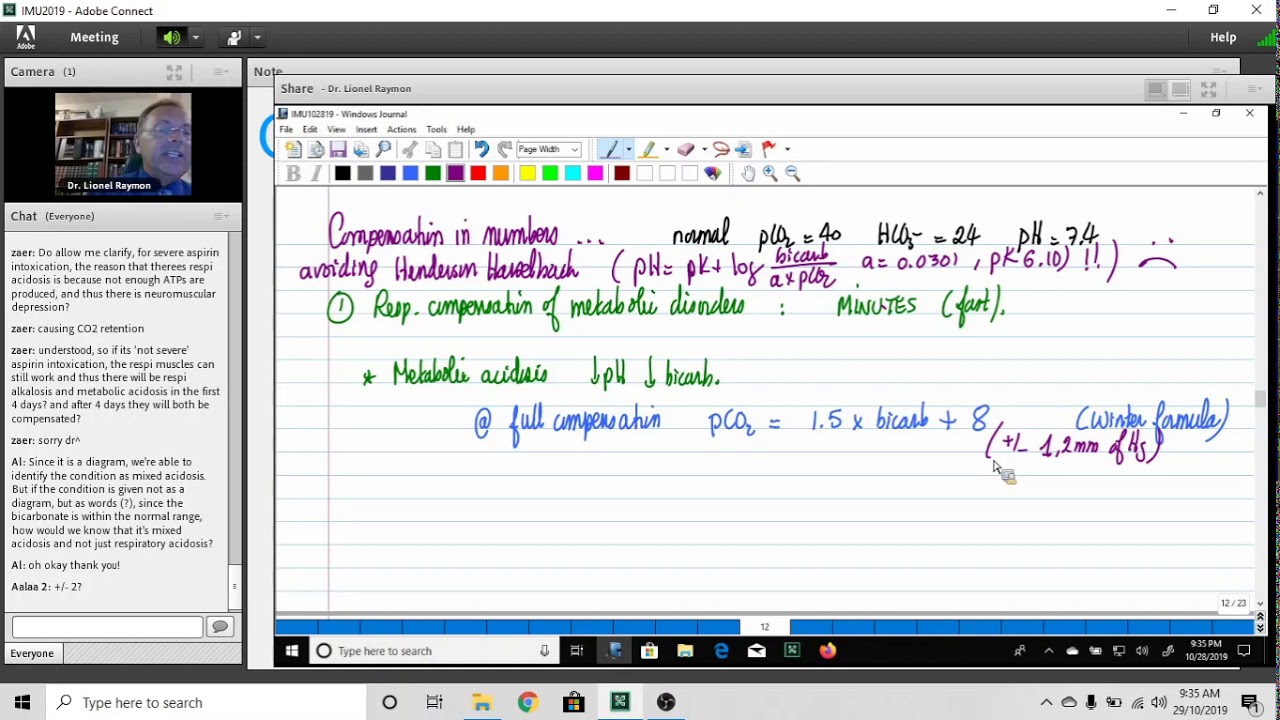 IMU2019 - Adobe Connect
Adobe
Meeting
Help
Camera (1)
Note
Share - Dr. Lionel Raymon
IMU102819 - Windows Journal
File Edit View Insert Actions Tools Help
Page Width
B I
Dr. Lionel Raymon
Chat (Everyone)
zaer: Do allow me clarify, for severe aspirin
intoxication, the reason that therees respi
acidosis is because not enough ATPs
are produced, and thus there is neuromuscular
depression?
zaer: causing CO2 retention
zaer: understood, so if its 'not severe'
aspirin intoxication, the respi muscles can
still work and thus there will be respi
alkalosis and metabolic acidosis in the first
4 days? and after 4 days they will both be
compensated?
zaer: sorry dr^
Al: Since it is a diagram, we're able to
identify the condition as mixed acidosis.
But if the condition is given not as a
diagram, but as words (?), since the
bicarbonate is within the normal range,
how would we know that it's mixed
acidosis and not just respiratory acidosis?
Al: oh okay thank you!
Aalaa 2: +/- 2?
Everyone
Compensation in numbers ... normal pCO2 = 40 HCO3- = 24 pH = 7.4
avoiding Henderson Hasselbach ( pH = pK + log bicarb / a x pCO2 a = 0.0301 , pK 6.10 ) !!
① Resp. compensation of metabolic disorders : MINUTES (fast).
* Metabolic acidosis ↓pH ↓ bicarb.
@ full compensation pCO2 = 1.5 x bicarb + 8 (Winter formula)
(+/- 1,2mm of Hg)
12 / 23
12
Type here to search
9:35 PM
10/28/2019
Type here to search
9:35 AM
29/10/2019
1